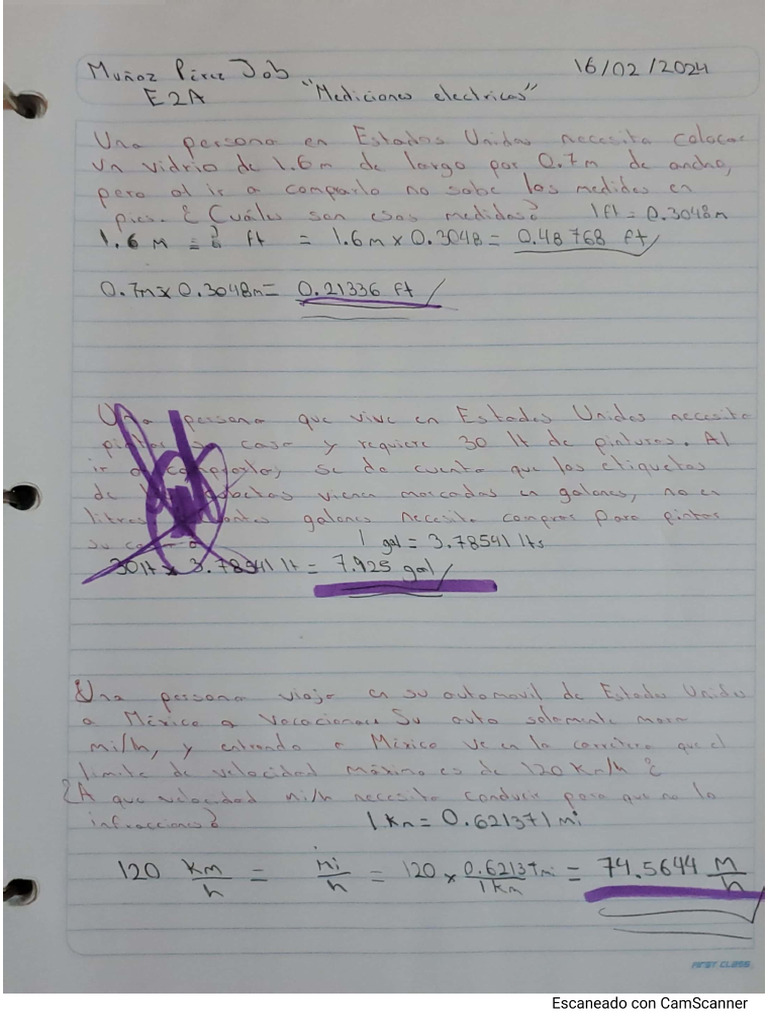 Muñoz Pérez Job 16/02/2024
E2A "Mediciones electricas"
Una persona en Estados Unidos necesita colocar
un vidrio de 1.6m de largo por 0.7m de ancho,
pero al ir a comprarlo no sabe las medidas en
pies. ¿Cuáles son esas medidas? 1ft = 0.3048m
1.6 M = ? ft = 1.6m x 0.3048 = 0.48768 ft
0.7m x 0.3048m = 0.21336 ft
Una persona que vive en Estados Unidos necesita
casa y requiere 30 lt de pintura. Al
ir a se da cuenta que las etiquetas
de vienen marcadas en galones, no en
litros galones necesita comprar para pintar
su 1 gal = 3.78541 lts
30lt x 3.78541 lt = 7.925 gal
Una persona viaja en su automovil de Estados Unidos
a México a vacacionar Su auto solamente marca
mi/h, y entrando a México ve en la carretera que el
limite de velocidad máximo es de 120 Km/h ¿
¿A que velocidad mi/h necesita conducir para que no lo
infraccionen? 1 Km = 0.621371 mi
120 km/h = mi/h = 120 x 0.62137mi/1 Km = 74.5644 M/h
FIRST CLASS
Escaneado con CamScanner